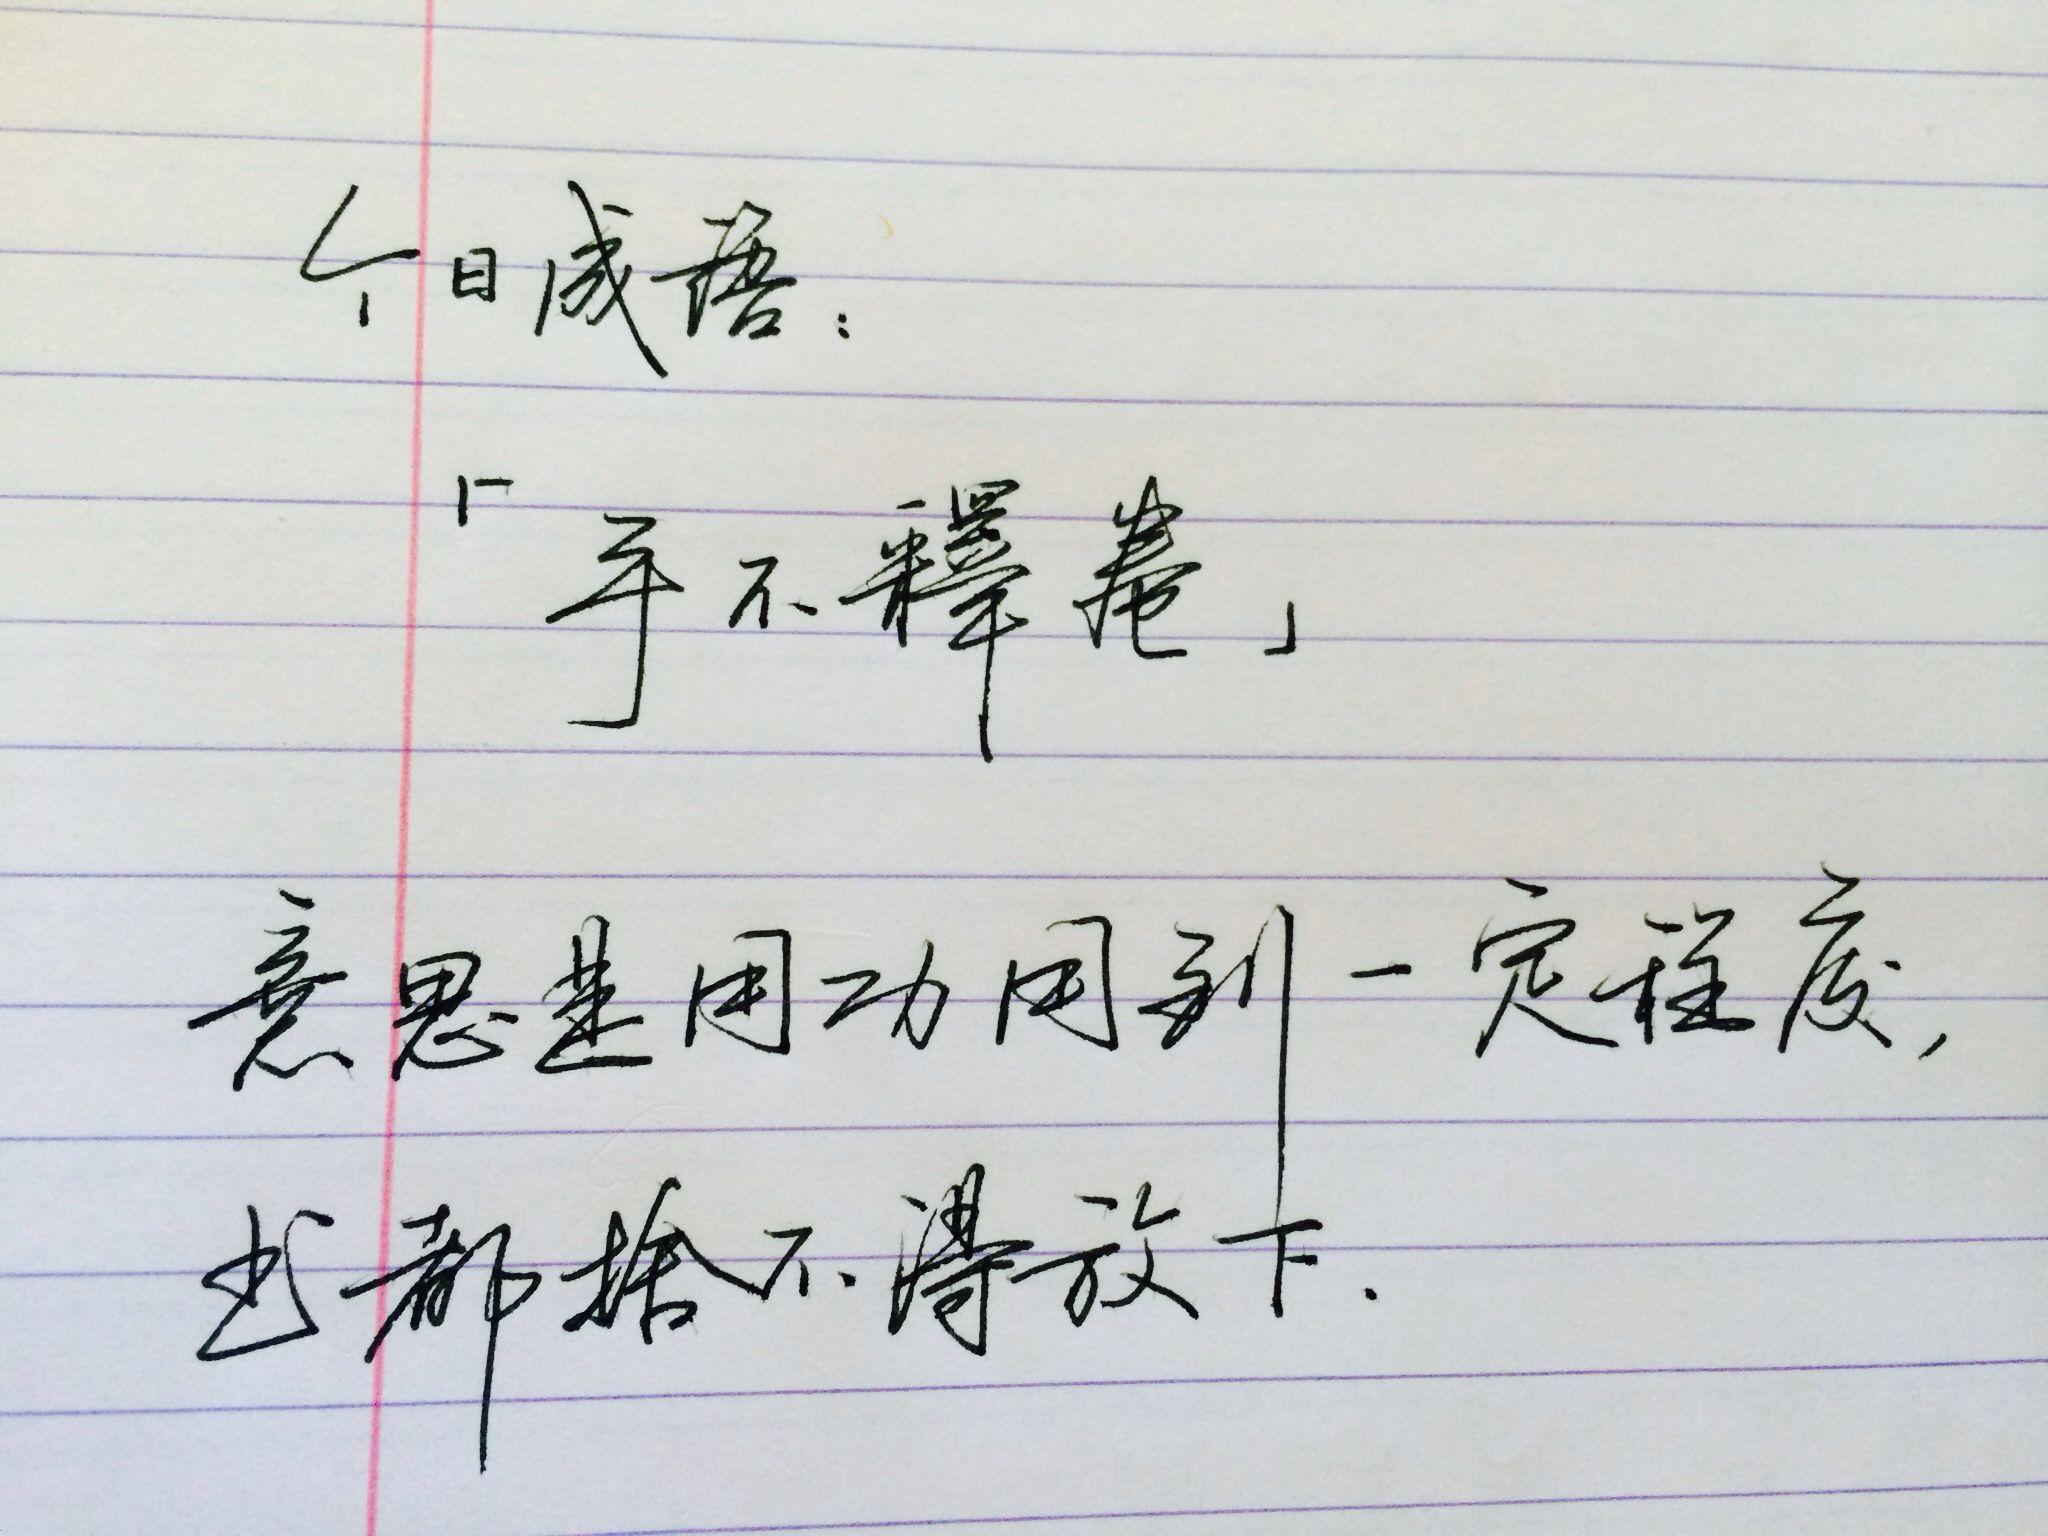 今日成語：
「手不釋卷」
意思是用功用到一定程度，
书都捨不得放下．